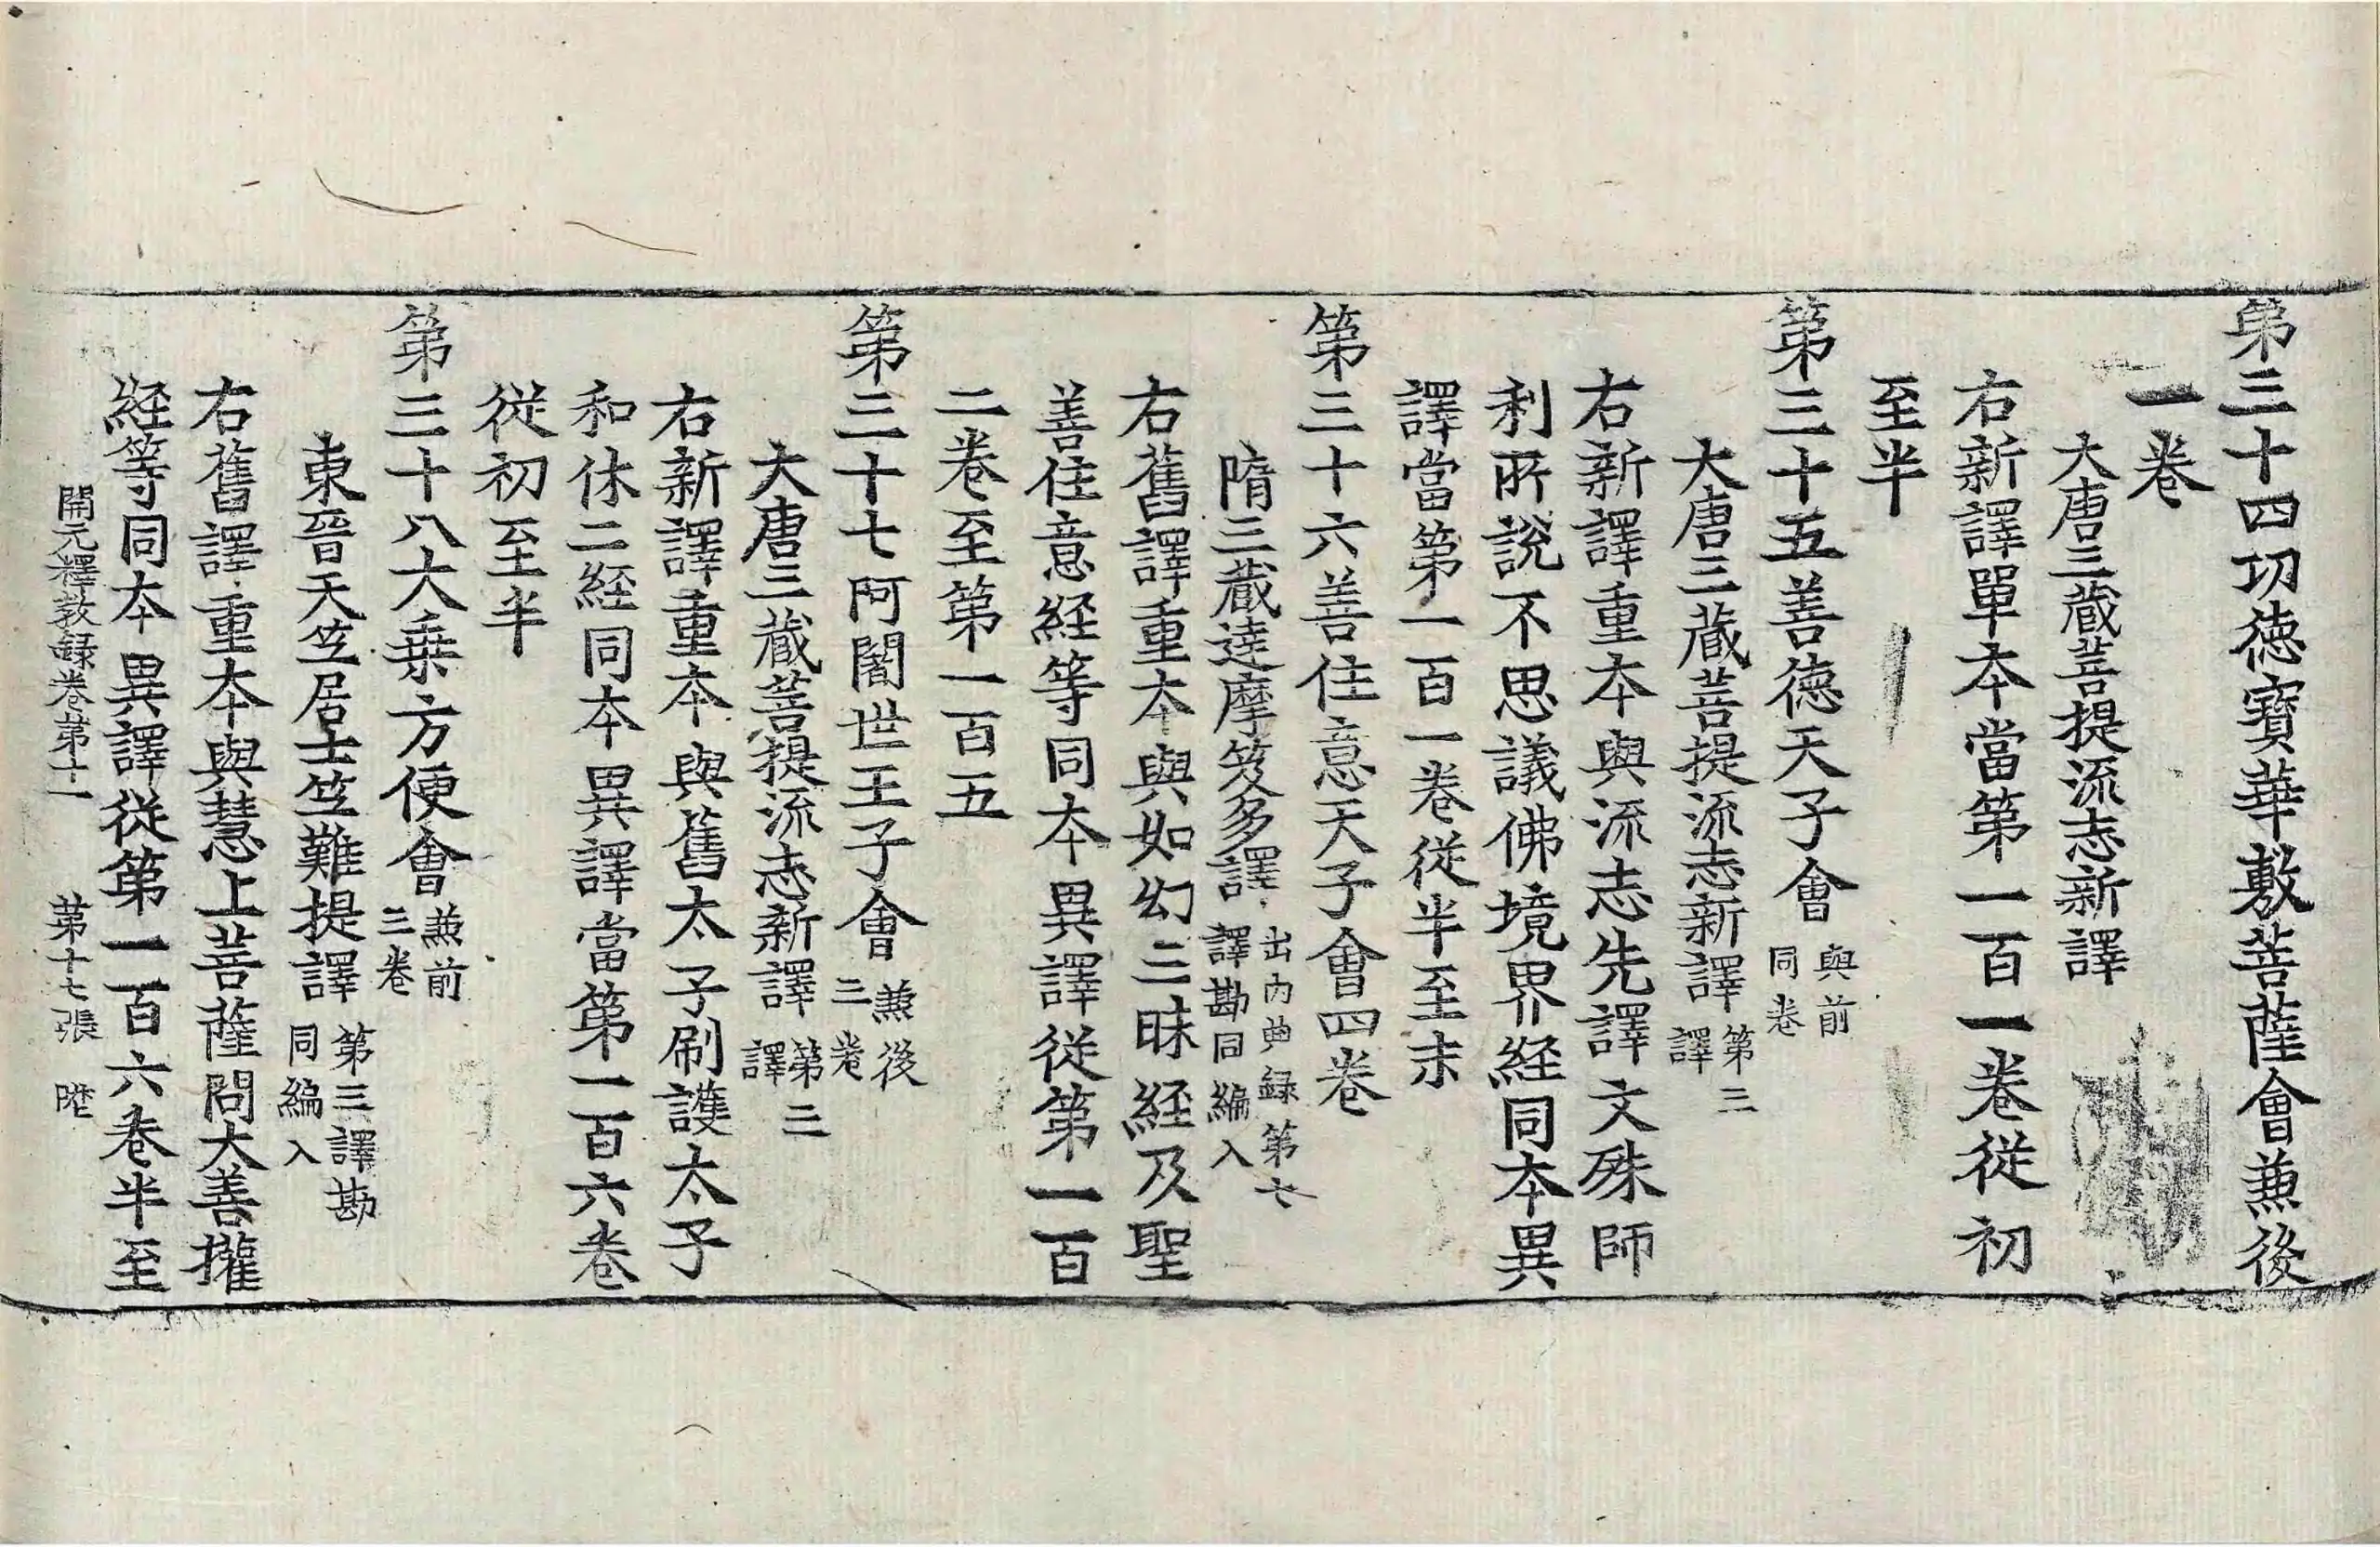 第三十四功徳寶華敷菩薩會兼後
一卷
大唐三藏菩提流志新譯
右新譯單本當第一百一卷從初
至半
第三十五善徳天子會與前同卷
大唐三藏菩提流志新譯第三譯
右新譯重本與流志先譯文殊師
利所說不思議佛境界経同本異
譯當第一百一卷從半至末
第三十六善住意天子會四卷
隋三藏達摩笈多譯出內典録第七譯勘同編入
右舊譯重本與如幻三昧経及聖
善住意経等同本異譯從第一百
二卷至第一百五
第三十七阿闍世王子會兼後三卷
大唐三藏菩提流志新譯第三譯
右新譯重本與舊太子刷護太子
和休二経同本異譯當第一百六卷
從初至半
第三十八大乗方便會兼前三卷
東晉天竺居士竺難提譯第三譯勘同編入
右舊譯重本與慧上菩薩問大善權
経等同本異譯從第一百六卷半至
開元釋教録卷第十一 第十七張 陞